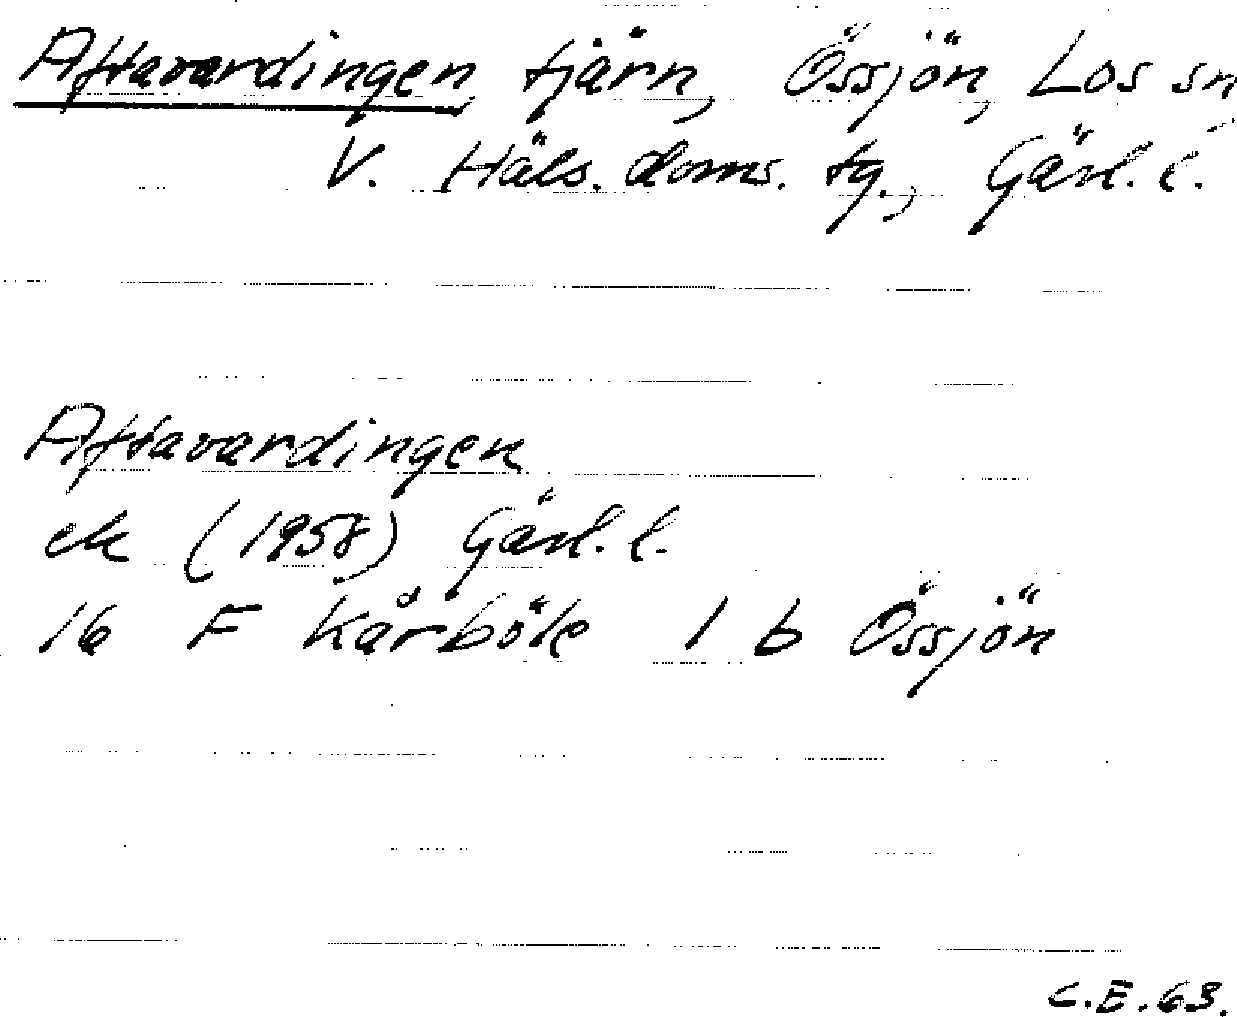 Aftavardingen, tjärn, Össjön, Los sn
V. Häls. doms. tg., Gävl. l.
Aftavardingen
ek (1958) Gävl. l.
16 F Kårböle 1 b Össjön
C.E.63.